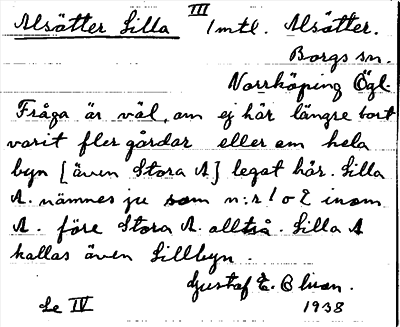 III
Alsätter Lilla 1 mtl. Alsätter.
Borgs sn.
Norrköping Ögl.
Fråga är väl, om ej här längre bort
varit fler gårdar eller om hela
byn [även Stora A] legat här. Lilla
A. nämnes ju som n:r 1 o 2 inom
A. före Stora A. alltså. Lilla A
kallas även Lillbyn.
Gustaf E. Olsson.
Se IV 1938